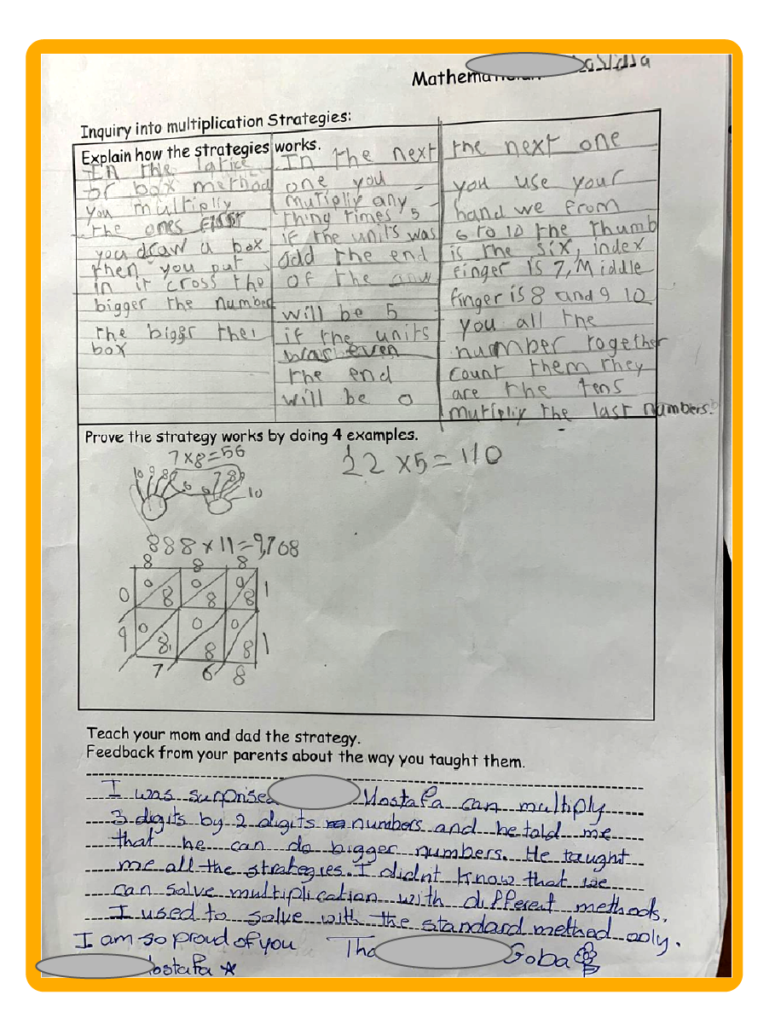 Mathematician
Inquiry into multiplication Strategies:
Explain how the strategies works.
In the latice
or box method
you multiply
the ones first
you draw a box
then you put
in it cross the
bigger the number
the biggr the
box
In the next
one you
mutipliy any
thing times 5
if the units was
odd the end
of the
will be 5
if the units
was even
the end
will be 0
the next one
you use your
hand we from
6 to 10 the thumb
is the six, index
finger is 7, Middle
finger is 8 and 9 10
you all the
number together
count them they
are the tens
mutipliy the last numbers.
Prove the strategy works by doing 4 examples.
7 x 8 = 56
10 9 8 7 6 6 7 8 9 10
22 x 5 = 110
888 x 11 = 9,768
8 8 8
0 0 8 0 8 0 8 1
9 0 8 0 8 0 8 1
7 6 8
Teach your mom and dad the strategy.
Feedback from your parents about the way you taught them.
I was surprised Mostafa can multiply
3 digits by 2 digits numbers and he told me
that he can do bigger numbers. He taught
me all the strategies. I didnt know that we
can solve multiplication with different methods.
I used to solve with the standard method only.
I am so proud of you
Goba